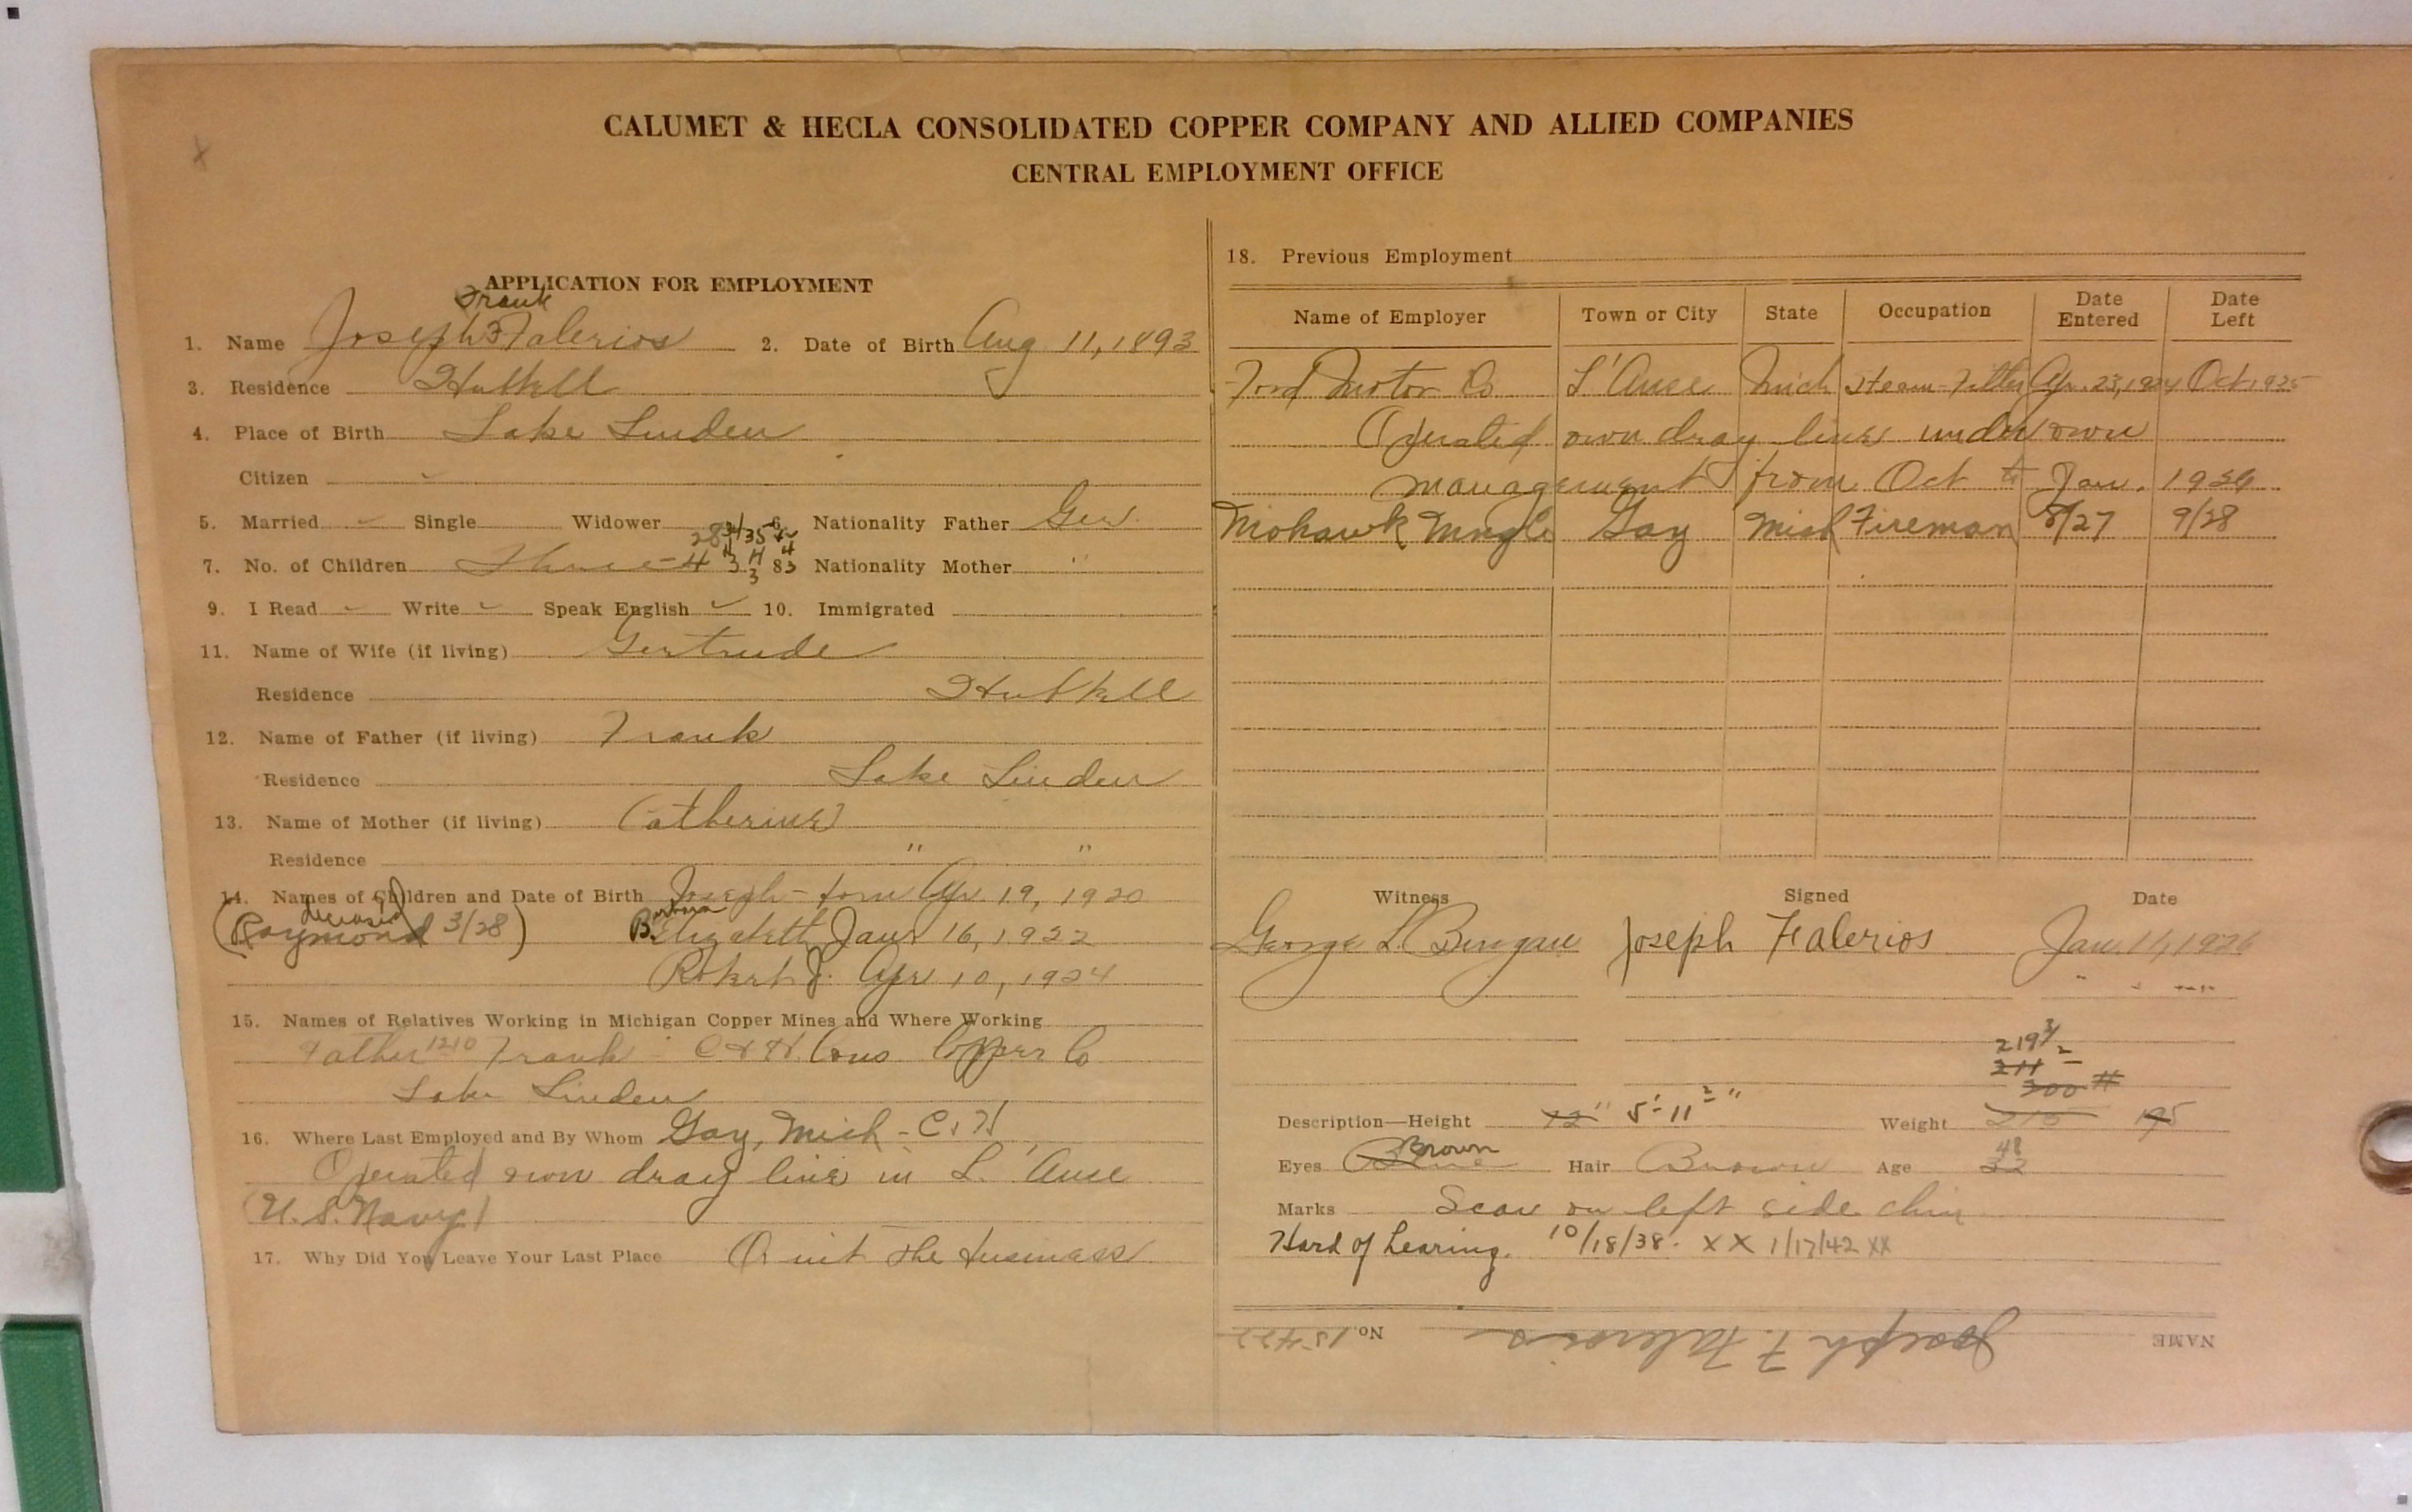 CALUMET & HECLA CONSOLIDATED COPPER COMPANY AND ALLIED COMPANIES
CENTRAL EMPLOYMENT OFFICE
APPLICATION FOR EMPLOYMENT
Frank
1. Name Joseph F Falerios 2. Date of Birth Aug 11, 1893
3. Residence Hubbell
4. Place of Birth Lake Linden
Citizen ✓
5. Married ✓ Single Widower 6. Nationality Father Ger.
7. No. of Children Three - 4 8. Nationality Mother "
9. I Read ✓ Write ✓ Speak English ✓ 10. Immigrated
11. Name of Wife (if living) Gertrude
Residence Hubbell
12. Name of Father (if living) Frank
Residence Lake Linden
13. Name of Mother (if living) Catherine
Residence " "
14. Names of Children and Date of Birth Joseph - born Apr 19, 1920
deceased
(Raymond 3/28) Elizabeth Jan 16, 1922
Robert J. Apr 10, 1924
15. Names of Relatives Working in Michigan Copper Mines and Where Working
Father 1210 Frank - C & H Cons Copper Co
Lake Linden
16. Where Last Employed and By Whom Gay, Mich - C & H
Operated own dray line in L'Anse
(U. S. Navy)
17. Why Did You Leave Your Last Place Quit the business
18. Previous Employment
Name of Employer Town or City State Occupation Date Entered Date Left
Ford Motor Co L'Anse Mich Steam-Fitter Apr. 23, 1924 Oct 1925
Operated own dray line under own
management from Oct to Jan. 1926
Mohawk Mng Co Gay Mich Fireman 8/27 9/28
Witness Signed Date
George L. Joseph Falerios Jan. 11, 1926
219
211
200 #
Description—Height 72" 5'-11 " Weight 215 195
Brown
48
Eyes Blue Hair Brown Age 32
Marks Scar on left side chin
Hard of hearing. 10/18/38. X X 1/17/42 XX
NAME Joseph F. Falerios No.